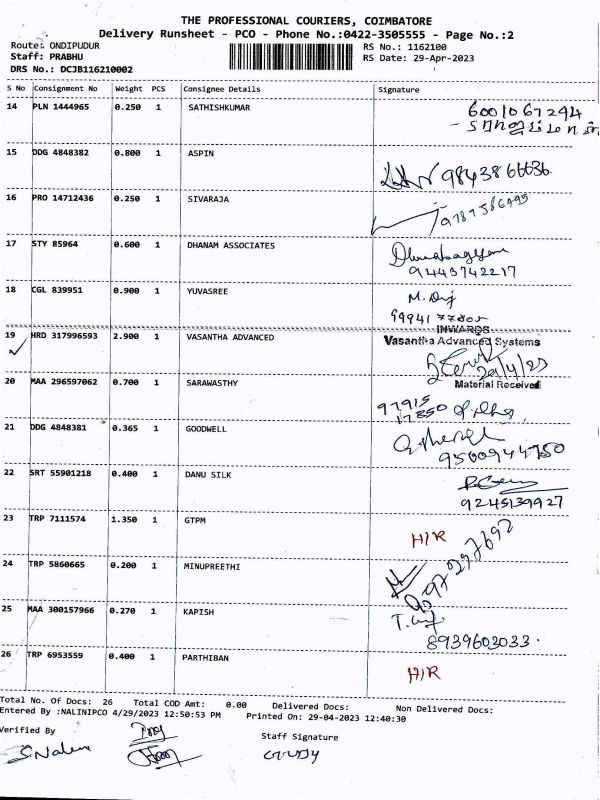 THE PROFESSIONAL COURIERS, COIMBATORE
Delivery Runsheet - PCO - Phone No.:0422-3505555 - Page No.:2
Route: ONDIPUDUR RS No.: 1162100
Staff: PRABHU RS Date: 29-Apr-2023
DRS No.: DCJB116210002
S No Consignment No Weight PCS Consignee Details Signature
14 PLN 1444965 0.250 1 SATHISHKUMAR 6001067294
15 DDG 4848382 0.800 1 ASPIN 9843866636
16 PRO 14712436 0.250 1 SIVARAJA
17 STY 85964 0.600 1 DHANAM ASSOCIATES
9443742217
18 CGL 839951 0.900 1 YUVASREE
INWARDS
19 HRD 317996593 2.900 1 VASANTHA ADVANCED Vasantha Advanced Systems
29/4/23
Material Received
20 MAA 296597062 0.700 1 SARAWASTHY 97915
17850
21 DDG 4848381 0.365 1 GOODWELL
9500944750
22 SRT 55901218 0.400 1 DANU SILK
9245139927
23 TRP 7111574 1.350 1 GTPM H/R
24 TRP 5860665 0.200 1 MINUPREETHI
25 MAA 300157966 0.270 1 KAPISH
8939603033.
26 TRP 6953559 0.400 1 PARTHIBAN H/R
Total No. Of Docs: 26 Total COD Amt: 0.00 Delivered Docs: Non Delivered Docs:
Entered By :NALINIPCO 4/29/2023 12:50:53 PM Printed On: 29-04-2023 12:40:30
Verified By Staff Signature
S.Nalini